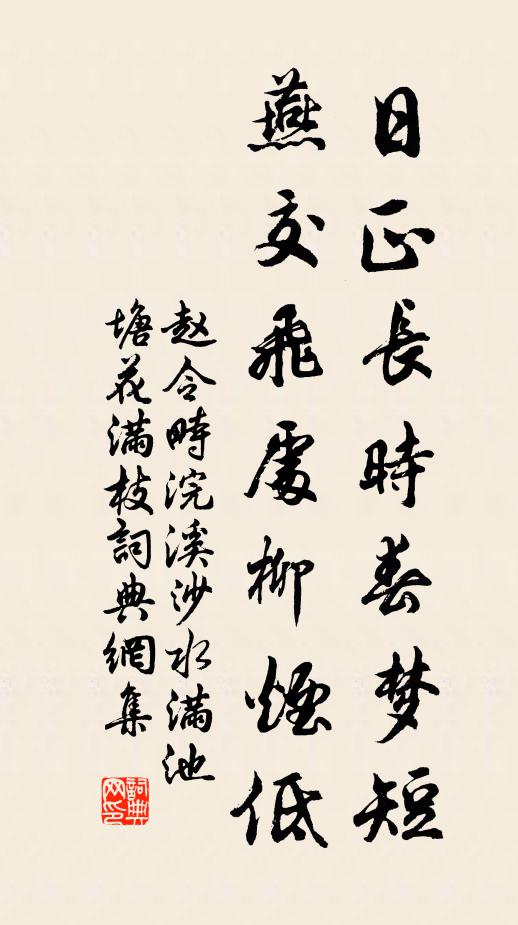 日正長時春梦短
燕交飛處柳煙低
赵令時浣溪沙水满池
塘花满枝詞典網集
詞典网印